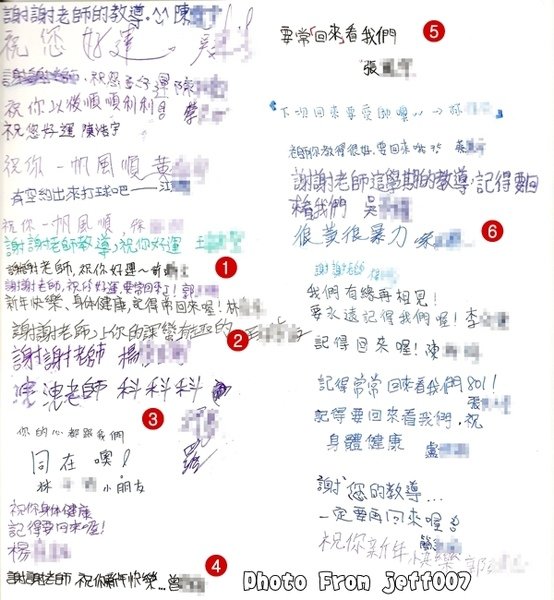 謝謝老師的教導.^^ 陳
祝您好運.吳
謝謝老師,祝您好運 陳
祝你以後順順利利 蔡
祝您好運 陳浩宇
祝你一帆風順 黃
有空約出來打球吧——江
祝你一帆風順,徐
謝謝老師教導,祝你好運 王
謝謝老師,祝你好運~ 前
1
謝謝老師,祝你好運,要常回來! 郭
新年快樂、身體健康,記得常回來喔! 林
謝謝老師,上你的課蠻有趣的
2
謝謝老師 楊
老師 科科科
3
你的心都跟我們
同在噢!
林 小朋友
祝你身体健康
記得要回來喔!
楊
4
謝謝老師 祝你新年快樂...曾
5
要常「回來」看我們
張
下次回來要愛助噢
老師你教得很好,要回來喔
謝謝老師這學期的教導,記得要回來
看我們 吳
6
很黃很暴力
謝謝老師
我們有緣再相見!
要永遠記得我們喔! 李
記得回來喔! 陳
記得常常回來看我們801!
張
記得要回來看我們,祝
身體健康 盧
謝謝您的教導...
一定要再回來喔
簡
祝你新年快樂 郭
Photo From jeff007